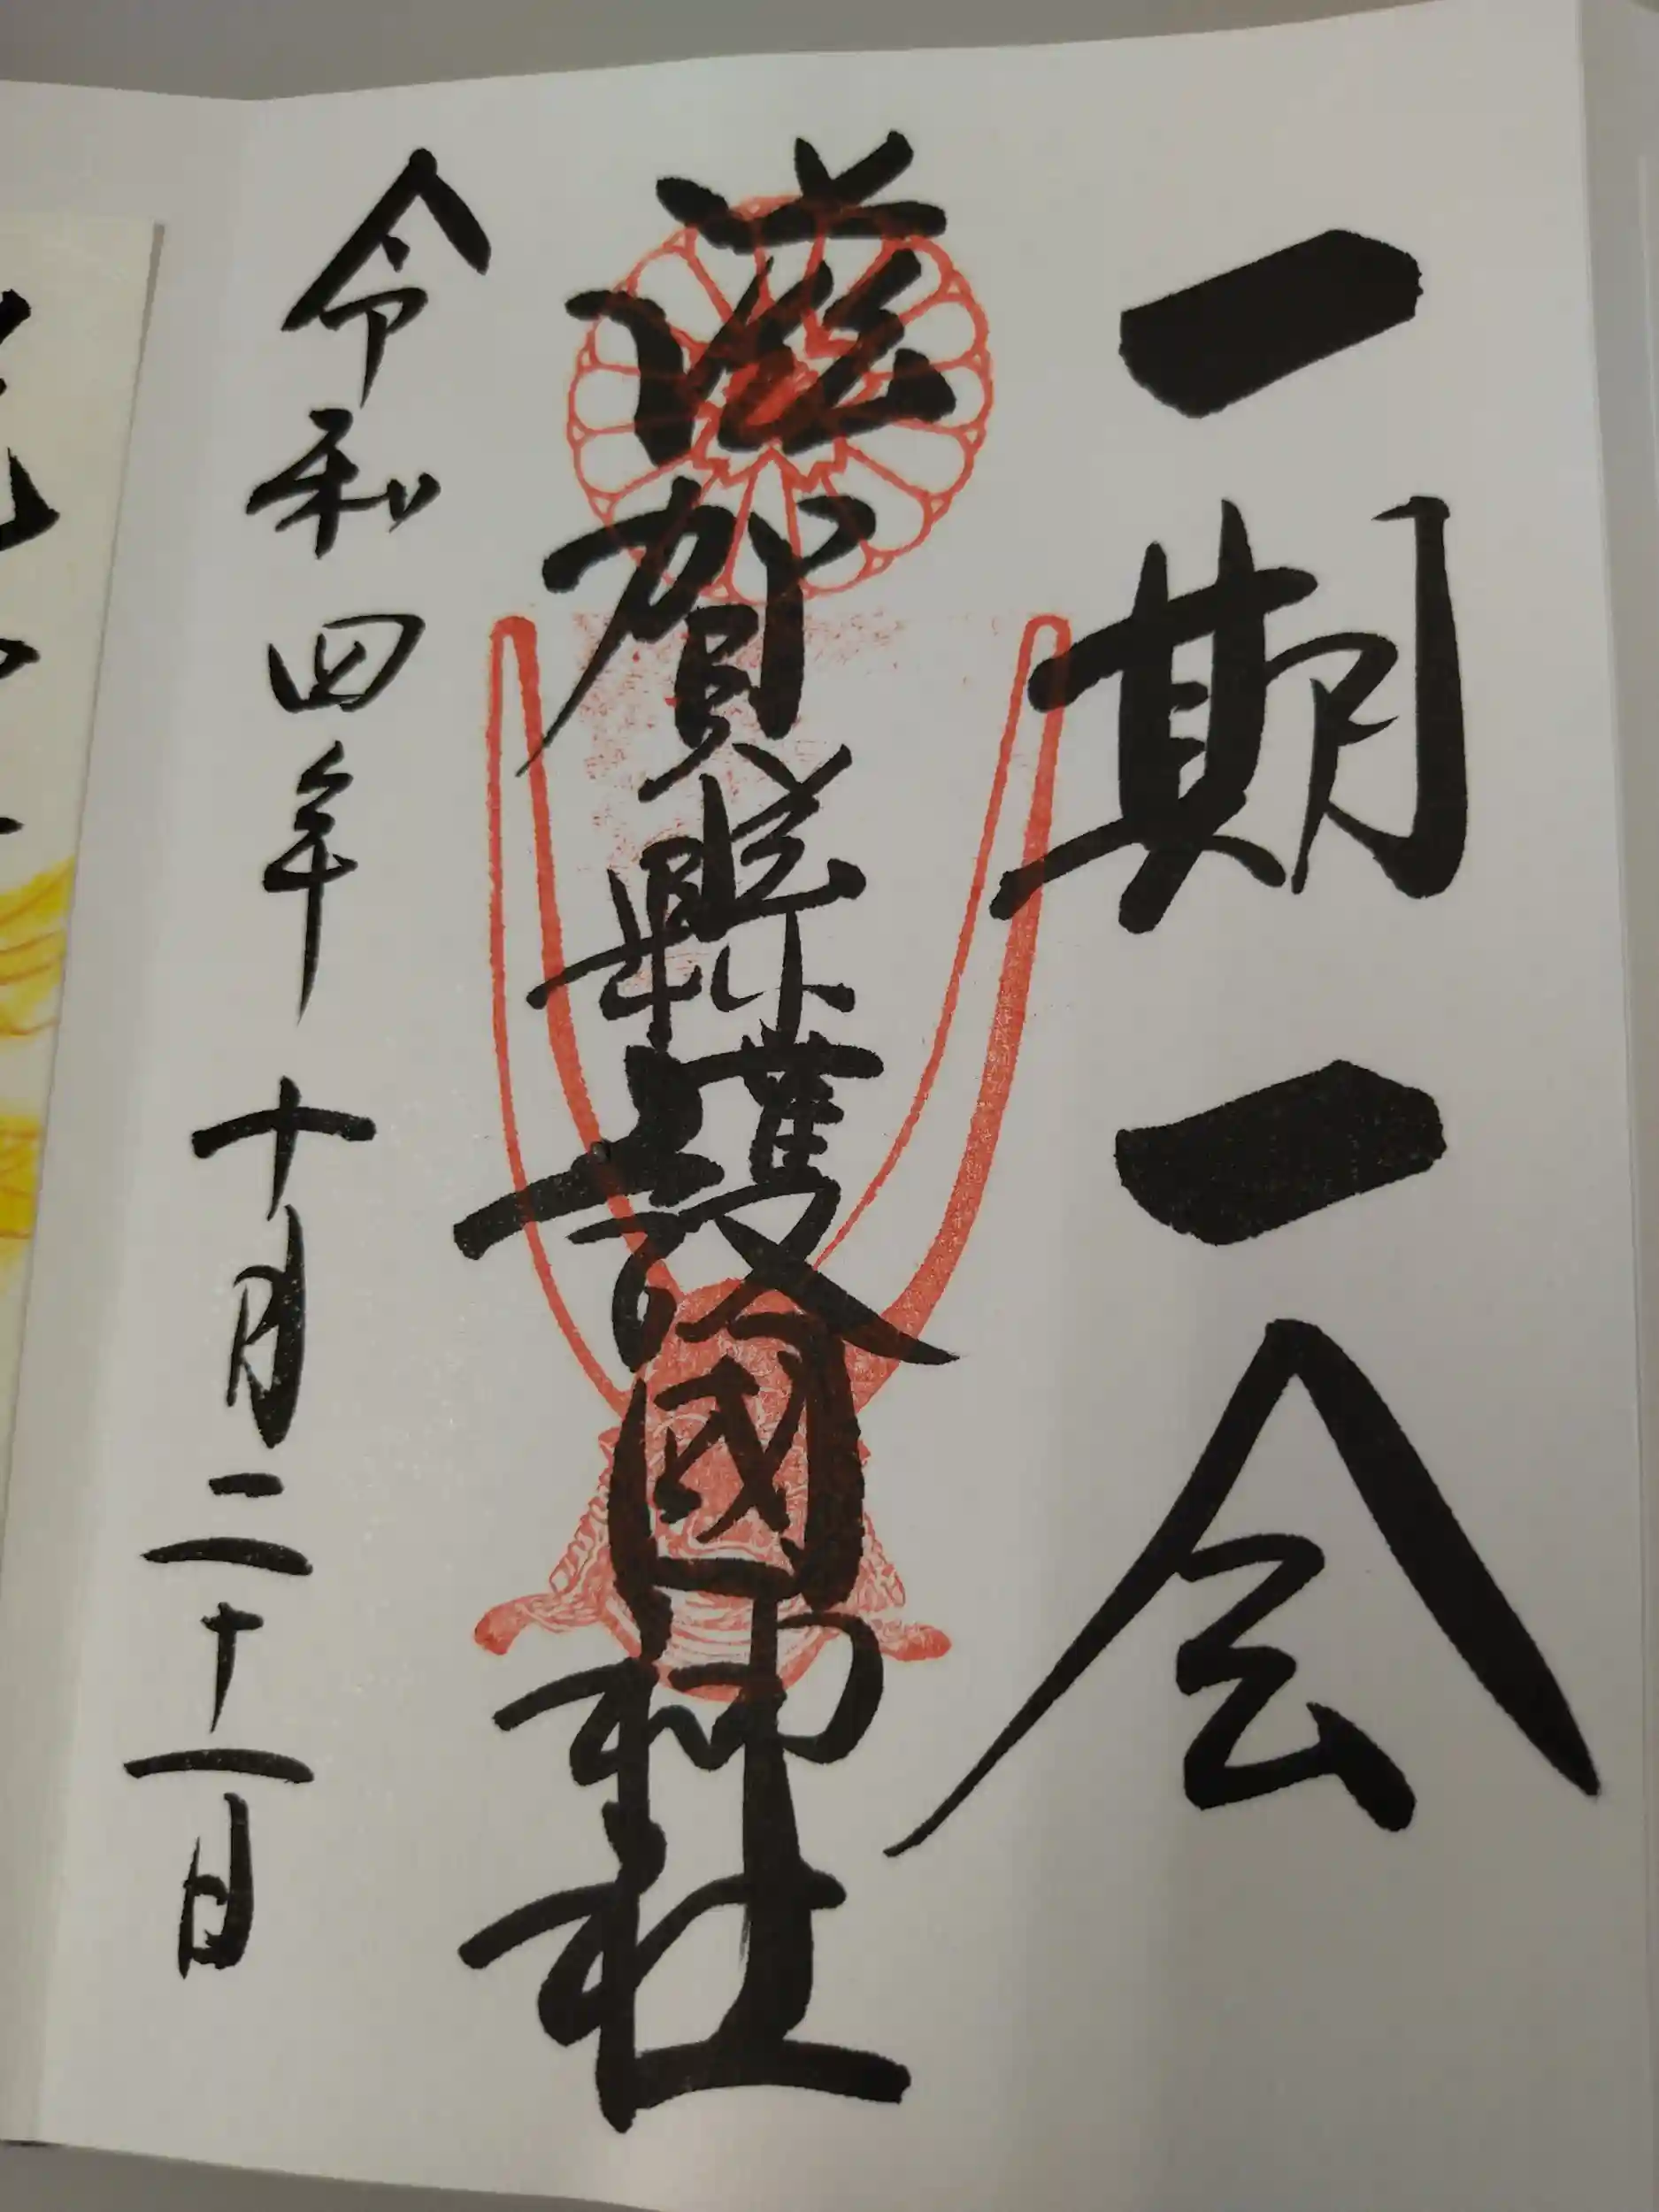 一期一会
滋賀縣護國神社
令和四年 十月二十一日